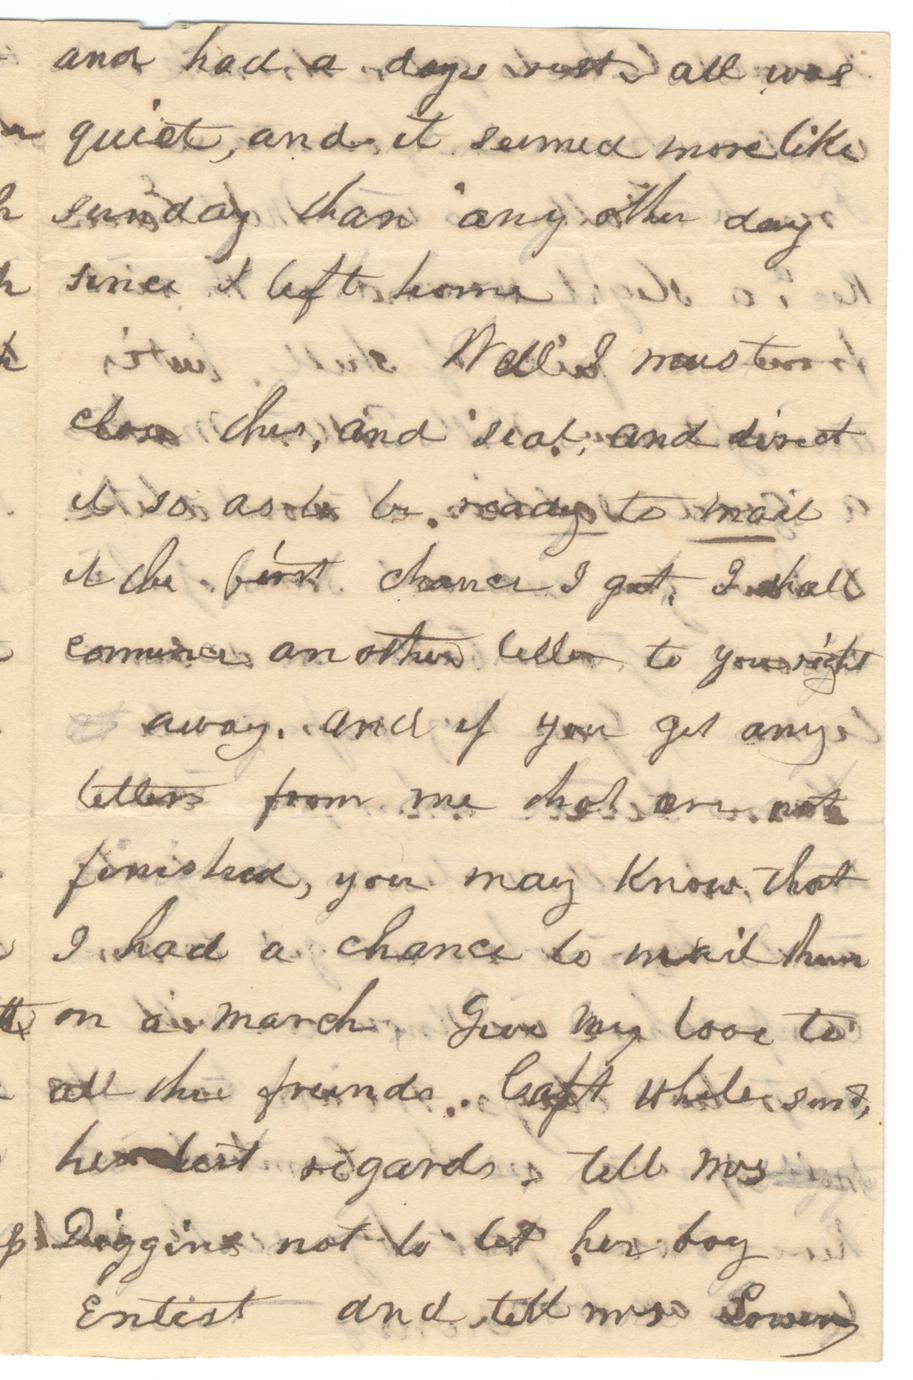 and had a days rest all was
quiet, and it seemed more like
sunday than any other day
since I left home
Well I must
close this, and seal, and direct
it so as to be ready to mail
it the first chance I get, I shall
commence another letter to you right
away. and if you get any
letters from me that are not
finished, you may know that
I had a chance to mail them
on a march. Give my love to
all the friends. Capt White sends
his best regards, tell Mrs
Diggins not to let her boy
Entist and tell mrs